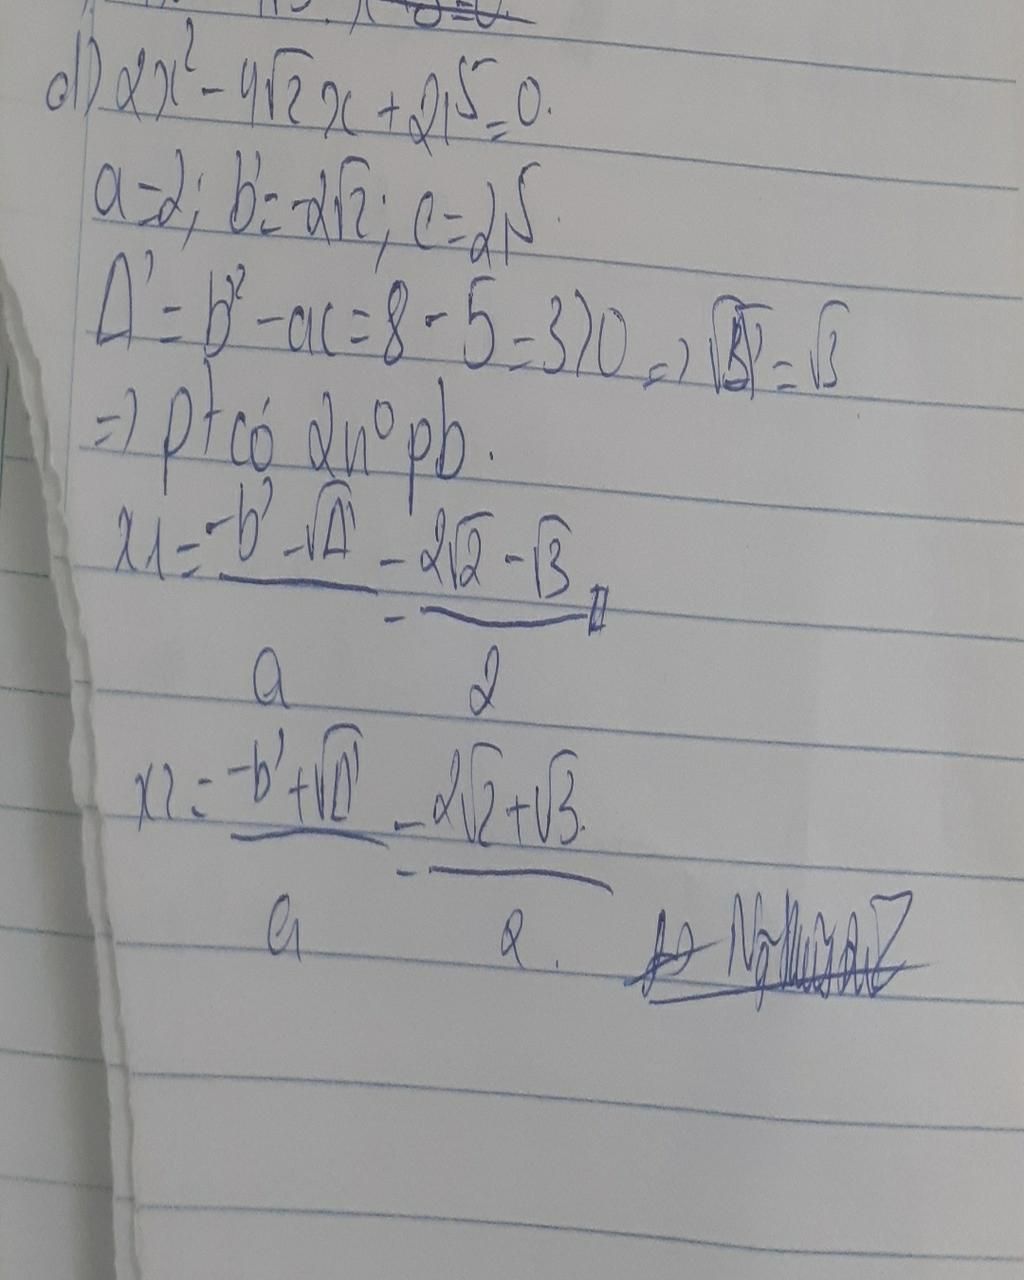 d) 2x² - 4√2 x + 2,5 = 0.
a = 2; b' = -2√2; c = 2,5.
Δ' = b'² - ac = 8 - 5 = 3 > 0 => √Δ' = √3
=> pt có 2 n⁰ pb.
x1 = (-b' - √Δ')/a = (2√2 - √3)/2
x2 = (-b' + √Δ')/a = (2√2 + √3)/2.